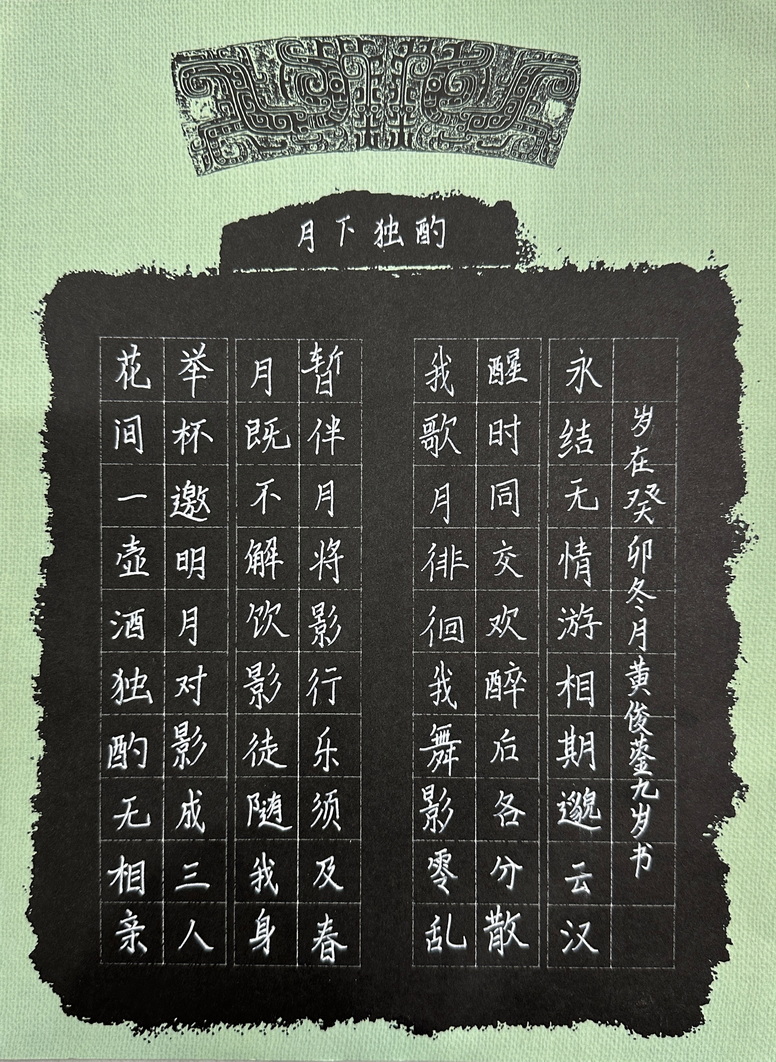 月下独酌
花间一壶酒独酌无相亲
举杯邀明月对影成三人
月既不解饮影徒随我身
暂伴月将影行乐须及春
我歌月徘徊我舞影零乱
醒时同交欢醉后各分散
永结无情游相期邈云汉
岁在癸卯冬月黄俊蓥九岁书